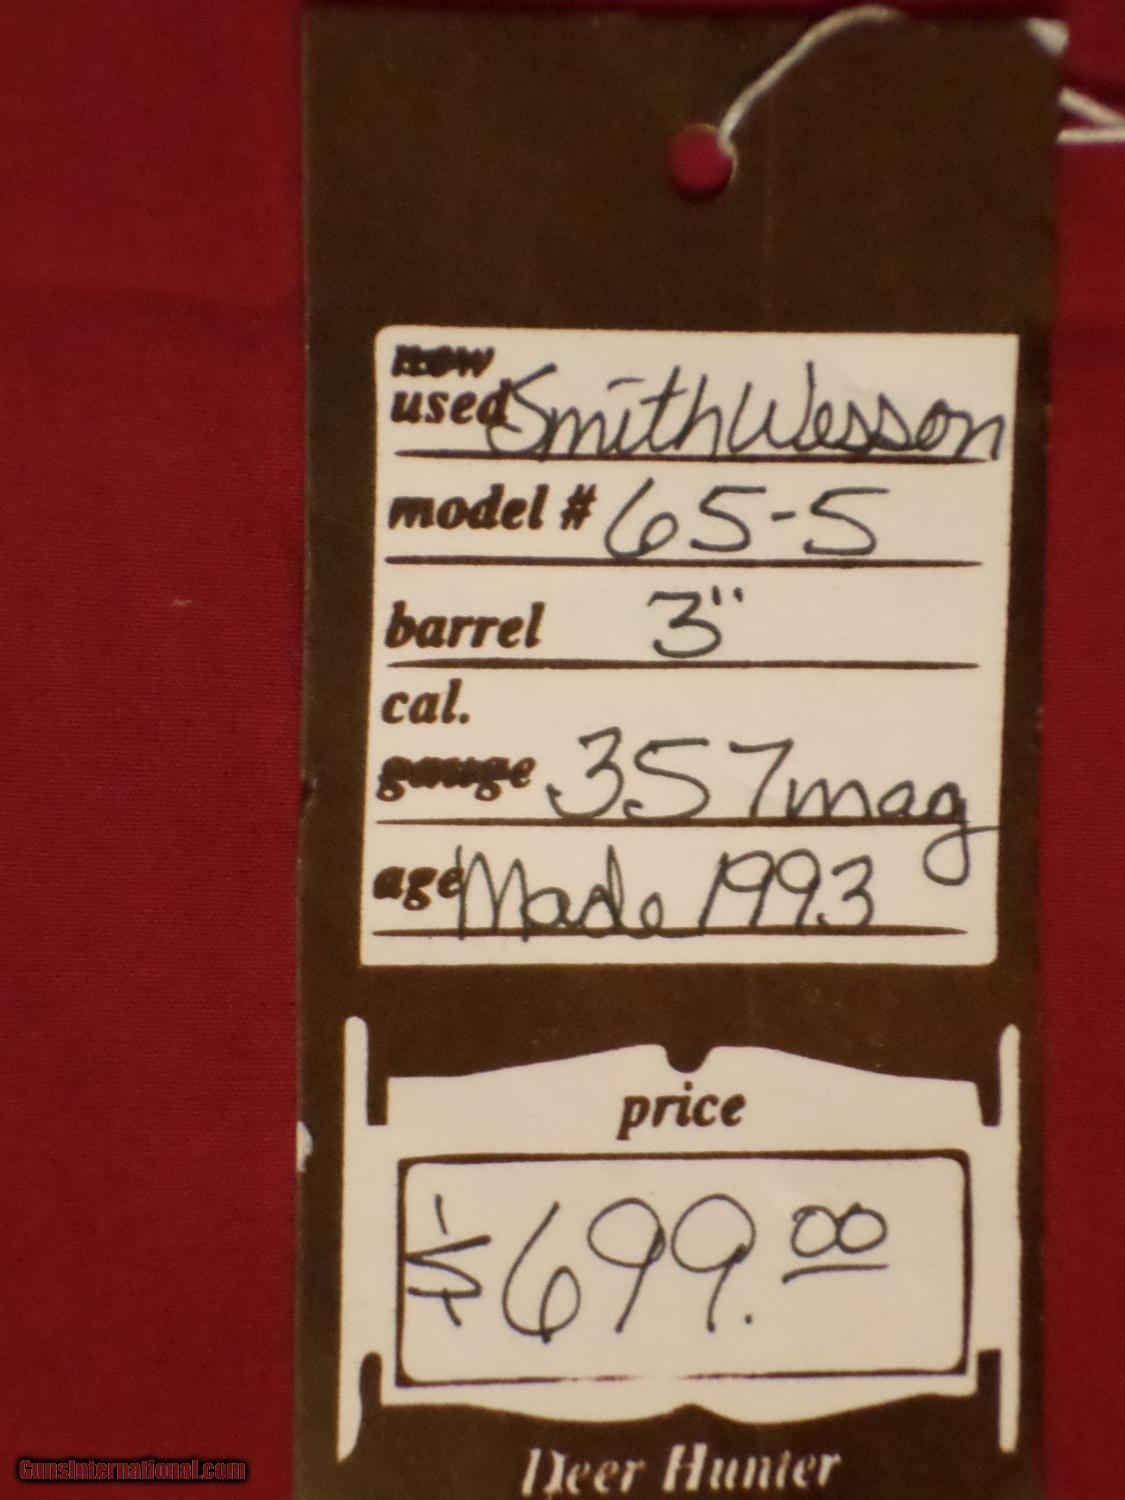 new
used Smith Wesson
model # 65-5
barrel 3"
cal.
gauge .357 mag
age Made 1993
price
$699.00
Deer Hunter
GunsInternational.com